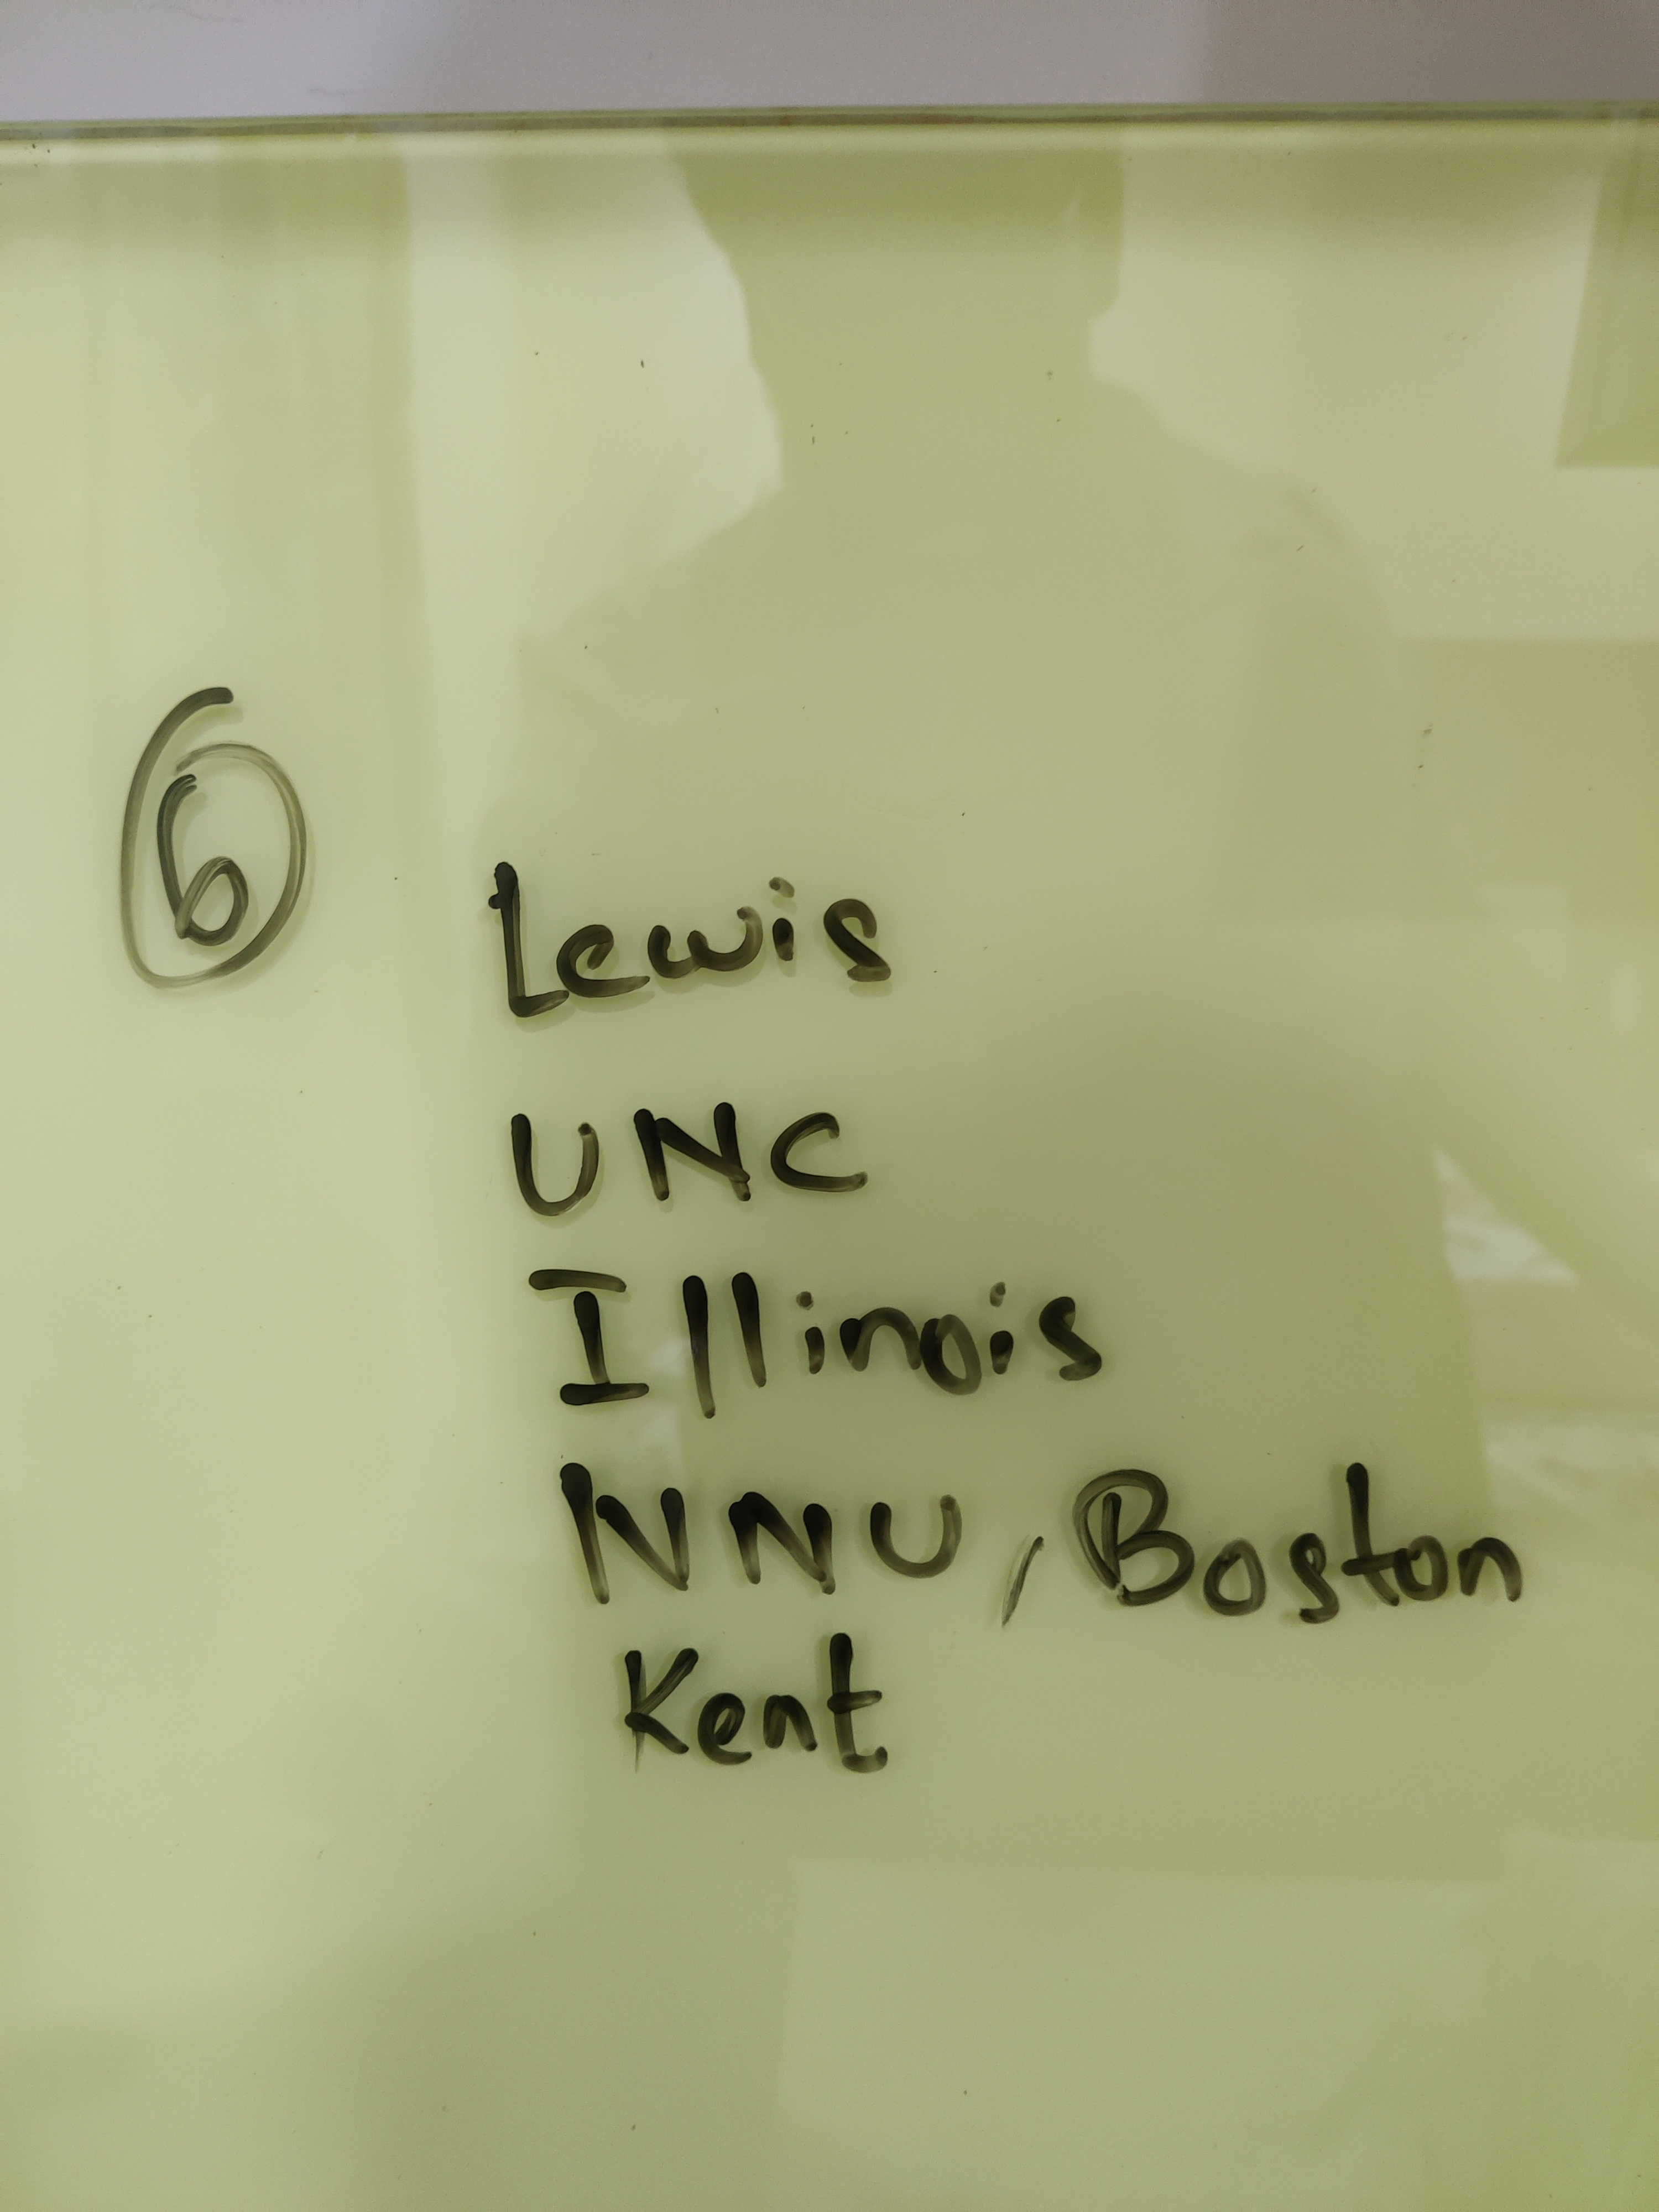 6
Lewis
UNC
Illinois
NNU, Boston
Kent